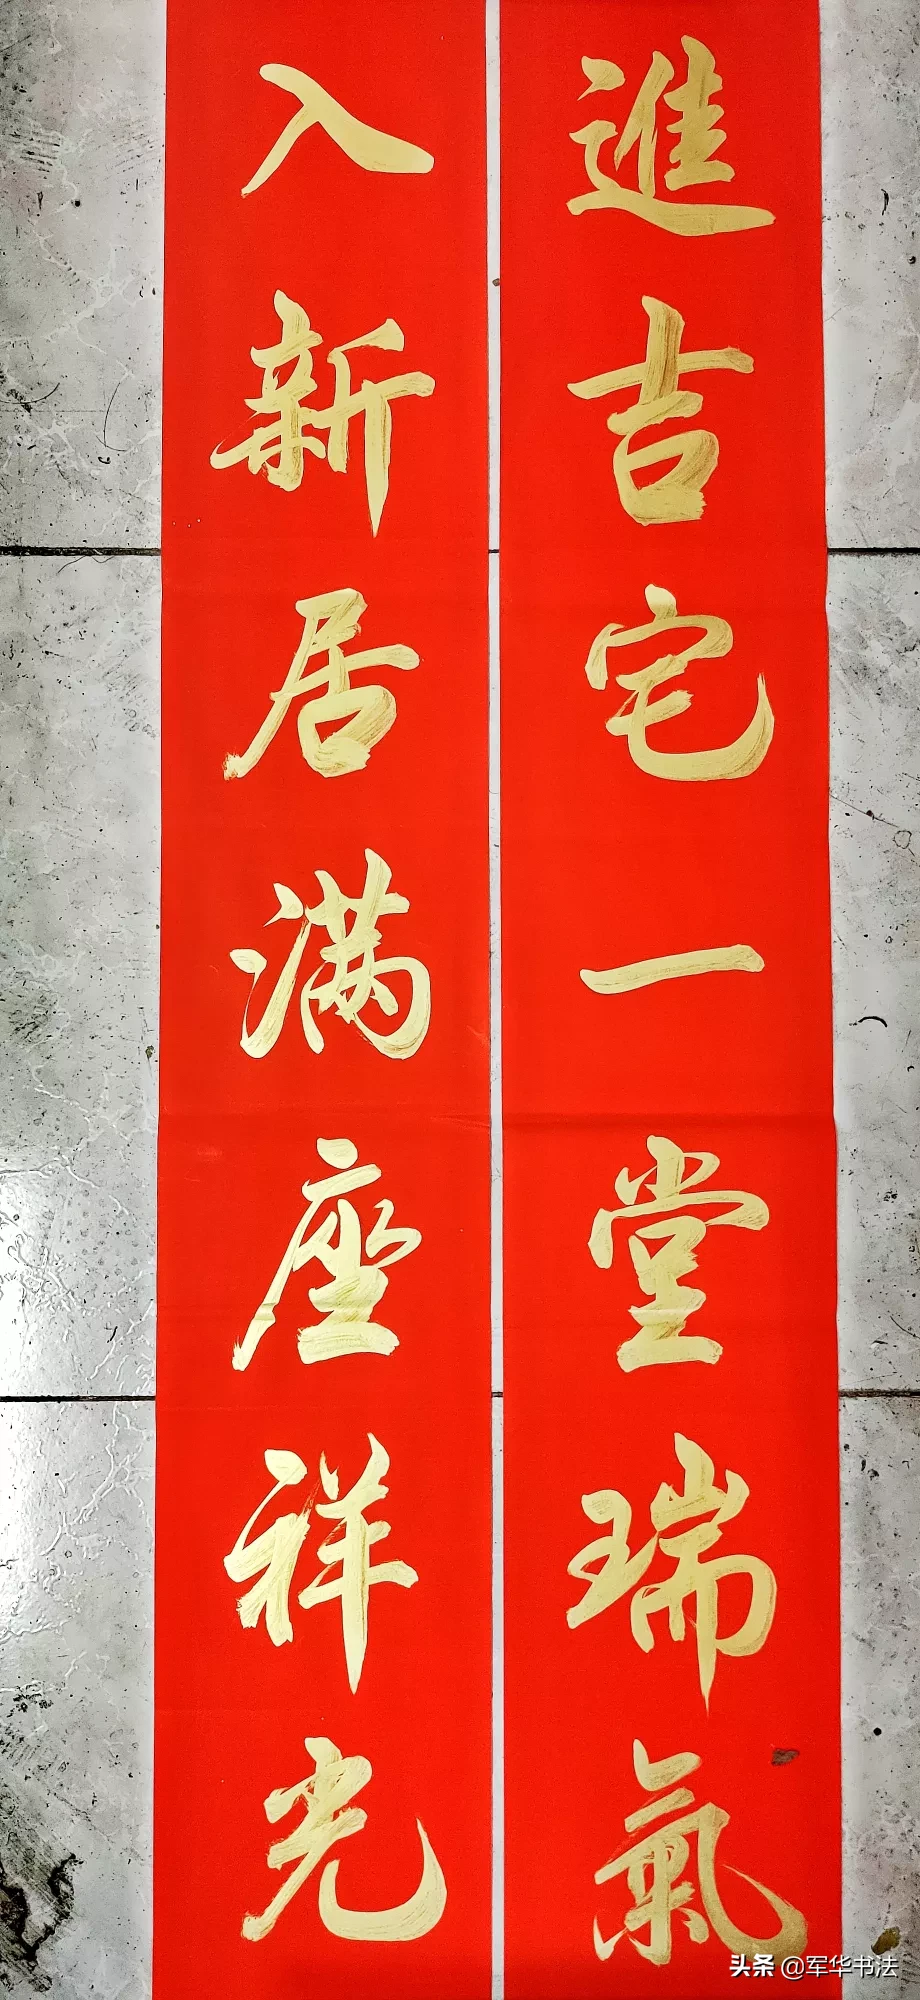 進吉宅一堂瑞氣
入新居满座祥光
头条 @军华书法